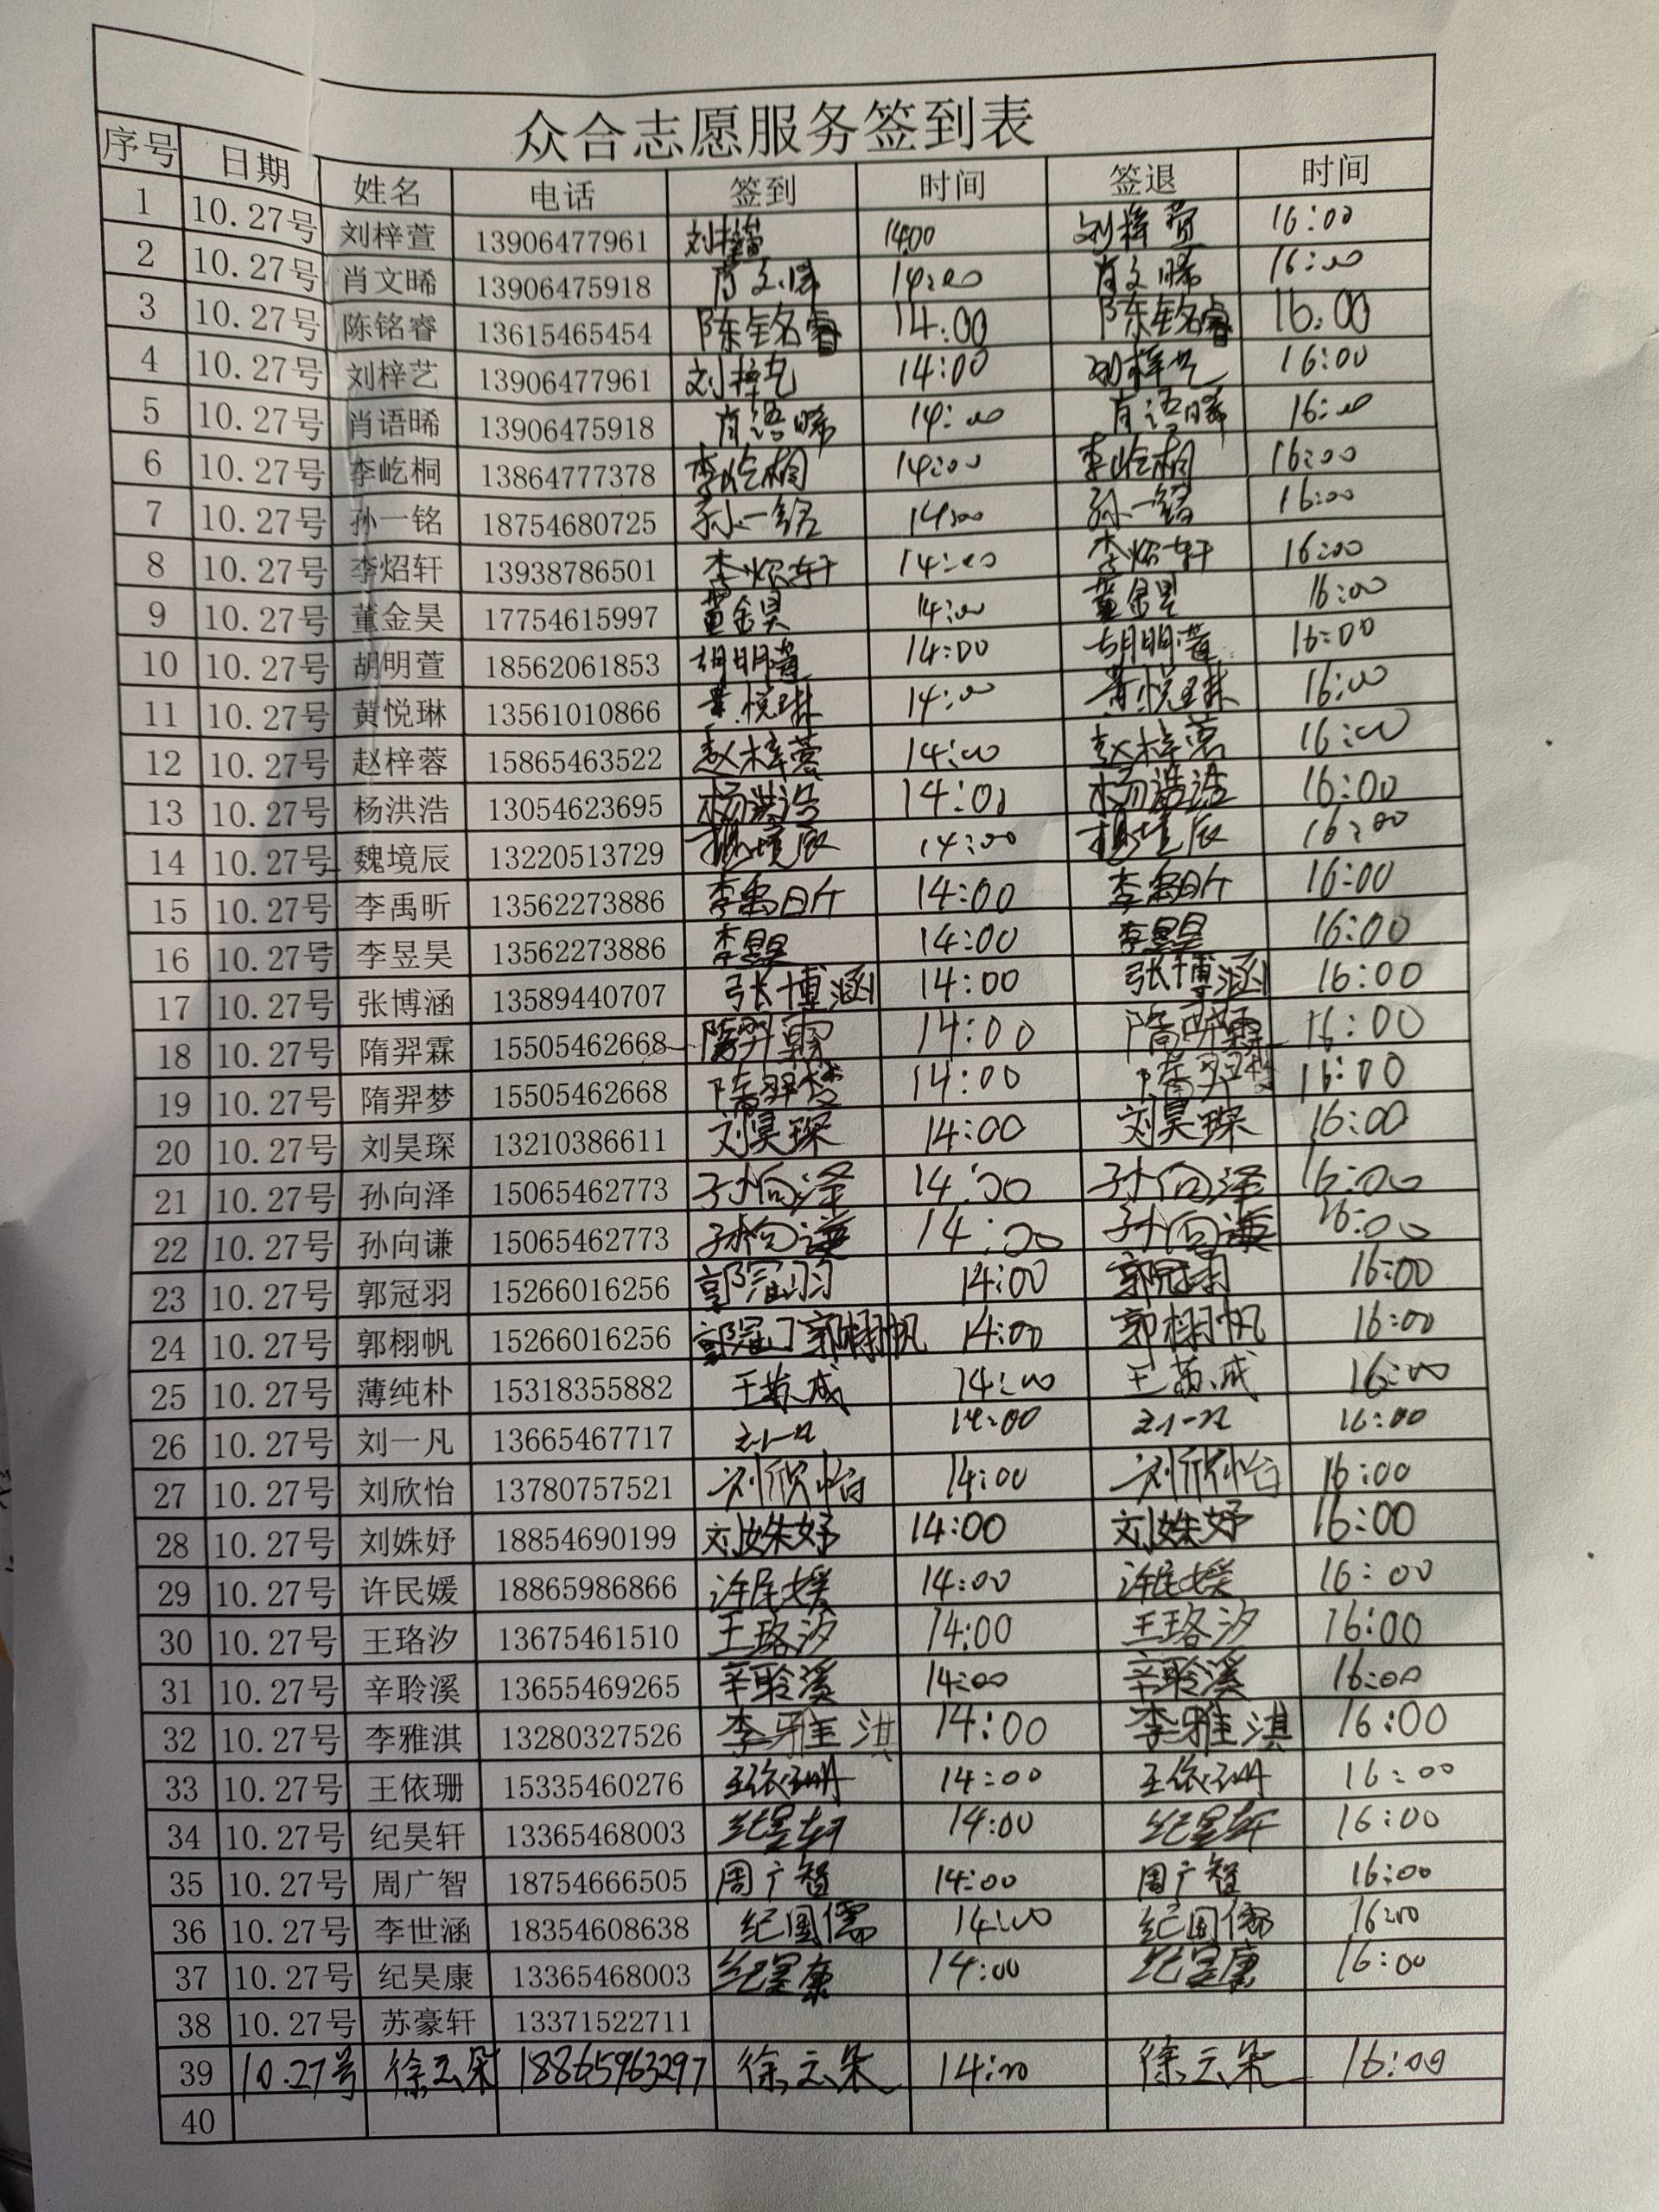 众合志愿服务签到表
序号 日期 姓名 电话 签到 时间 签退 时间
1 10.27号 刘梓萱 13906477961 刘梓萱 14:00 刘梓萱 16:00
2 10.27号 肖文晞 13906475918 肖文晞 14:00 肖文晞 16:00
3 10.27号 陈铭睿 13615465454 陈铭睿 14:00 陈铭睿 16:00
4 10.27号 刘梓艺 13906477961 刘梓艺 14:00 刘梓艺 16:00
5 10.27号 肖语晞 13906475918 肖语晞 14:00 肖语晞 16:00
6 10.27号 李屹桐 13864777378 14:00 16:00
7 10.27号 孙一铭 18754680725 孙一铭 14:00 孙一铭 16:00
8 10.27号 李炤轩 13938786501 李炤轩 14:00 李炤轩 16:00
9 10.27号 董金昊 17754615997 董金昊 14:00 董金昊 16:00
10 10.27号 胡明萱 18562061853 胡明萱 14:00 胡明萱 16:00
11 10.27号 黄悦琳 13561010866 黄悦琳 14:00 黄悦琳 16:00
12 10.27号 赵梓蓉 15865463522 赵梓蓉 14:00 赵梓蓉 16:00
13 10.27号 杨洪浩 13054623695 杨洪浩 14:00 杨洪浩 16:00
14 10.27号 魏境辰 13220513729 魏境辰 14:00 魏境辰 16:00
15 10.27号 李禹昕 13562273886 李禹昕 14:00 李禹昕 16:00
16 10.27号 李昱昊 13562273886 李昱昊 14:00 李昱昊 16:00
17 10.27号 张博涵 13589440707 张博涵 14:00 张博涵 16:00
18 10.27号 隋羿霖 15505462668 隋羿霖 14:00 隋羿霖 16:00
19 10.27号 隋羿梦 15505462668 隋羿梦 14:00 隋羿梦 16:00
20 10.27号 刘昊琛 13210386611 刘昊琛 14:00 刘昊琛 16:00
21 10.27号 孙向泽 15065462773 孙向泽 14:00 孙向泽 16:00
22 10.27号 孙向谦 15065462773 孙向谦 14:00 孙向谦 16:00
23 10.27号 郭冠羽 15266016256 郭冠羽 14:00 郭冠羽 16:00
24 10.27号 郭栩帆 15266016256 郭冠 郭栩帆 14:00 郭栩帆 16:00
25 10.27号 薄纯朴 15318355882 14:00 16:00
26 10.27号 刘一凡 13665467717 刘一凡 14:00 刘一凡 16:00
27 10.27号 刘欣怡 13780757521 刘欣怡 14:00 刘欣怡 16:00
28 10.27号 刘姝妤 18854690199 刘姝妤 14:00 刘姝妤 16:00
29 10.27号 许民媛 18865986866 许民媛 14:00 许民媛 16:00
30 10.27号 王珞汐 13675461510 王珞汐 14:00 王珞汐 16:00
31 10.27号 辛聆溪 13655469265 辛聆溪 14:00 辛聆溪 16:00
32 10.27号 李雅淇 13280327526 李雅淇 14:00 李雅淇 16:00
33 10.27号 王依珊 15335460276 王依珊 14:00 王依珊 16:00
34 10.27号 纪昊轩 13365468003 纪昊轩 14:00 纪昊轩 16:00
35 10.27号 周广智 18754666505 周广智 14:00 周广智 16:00
36 10.27号 李世涵 18354608638 纪国儒 14:00 纪国儒 16:00
37 10.27号 纪昊康 13365468003 纪昊康 14:00 纪昊康 16:00
38 10.27号 苏豪轩 13371522711
39 10.27号 徐云朵 18865963297 徐云朵 14:00 徐云朵 16:00
40